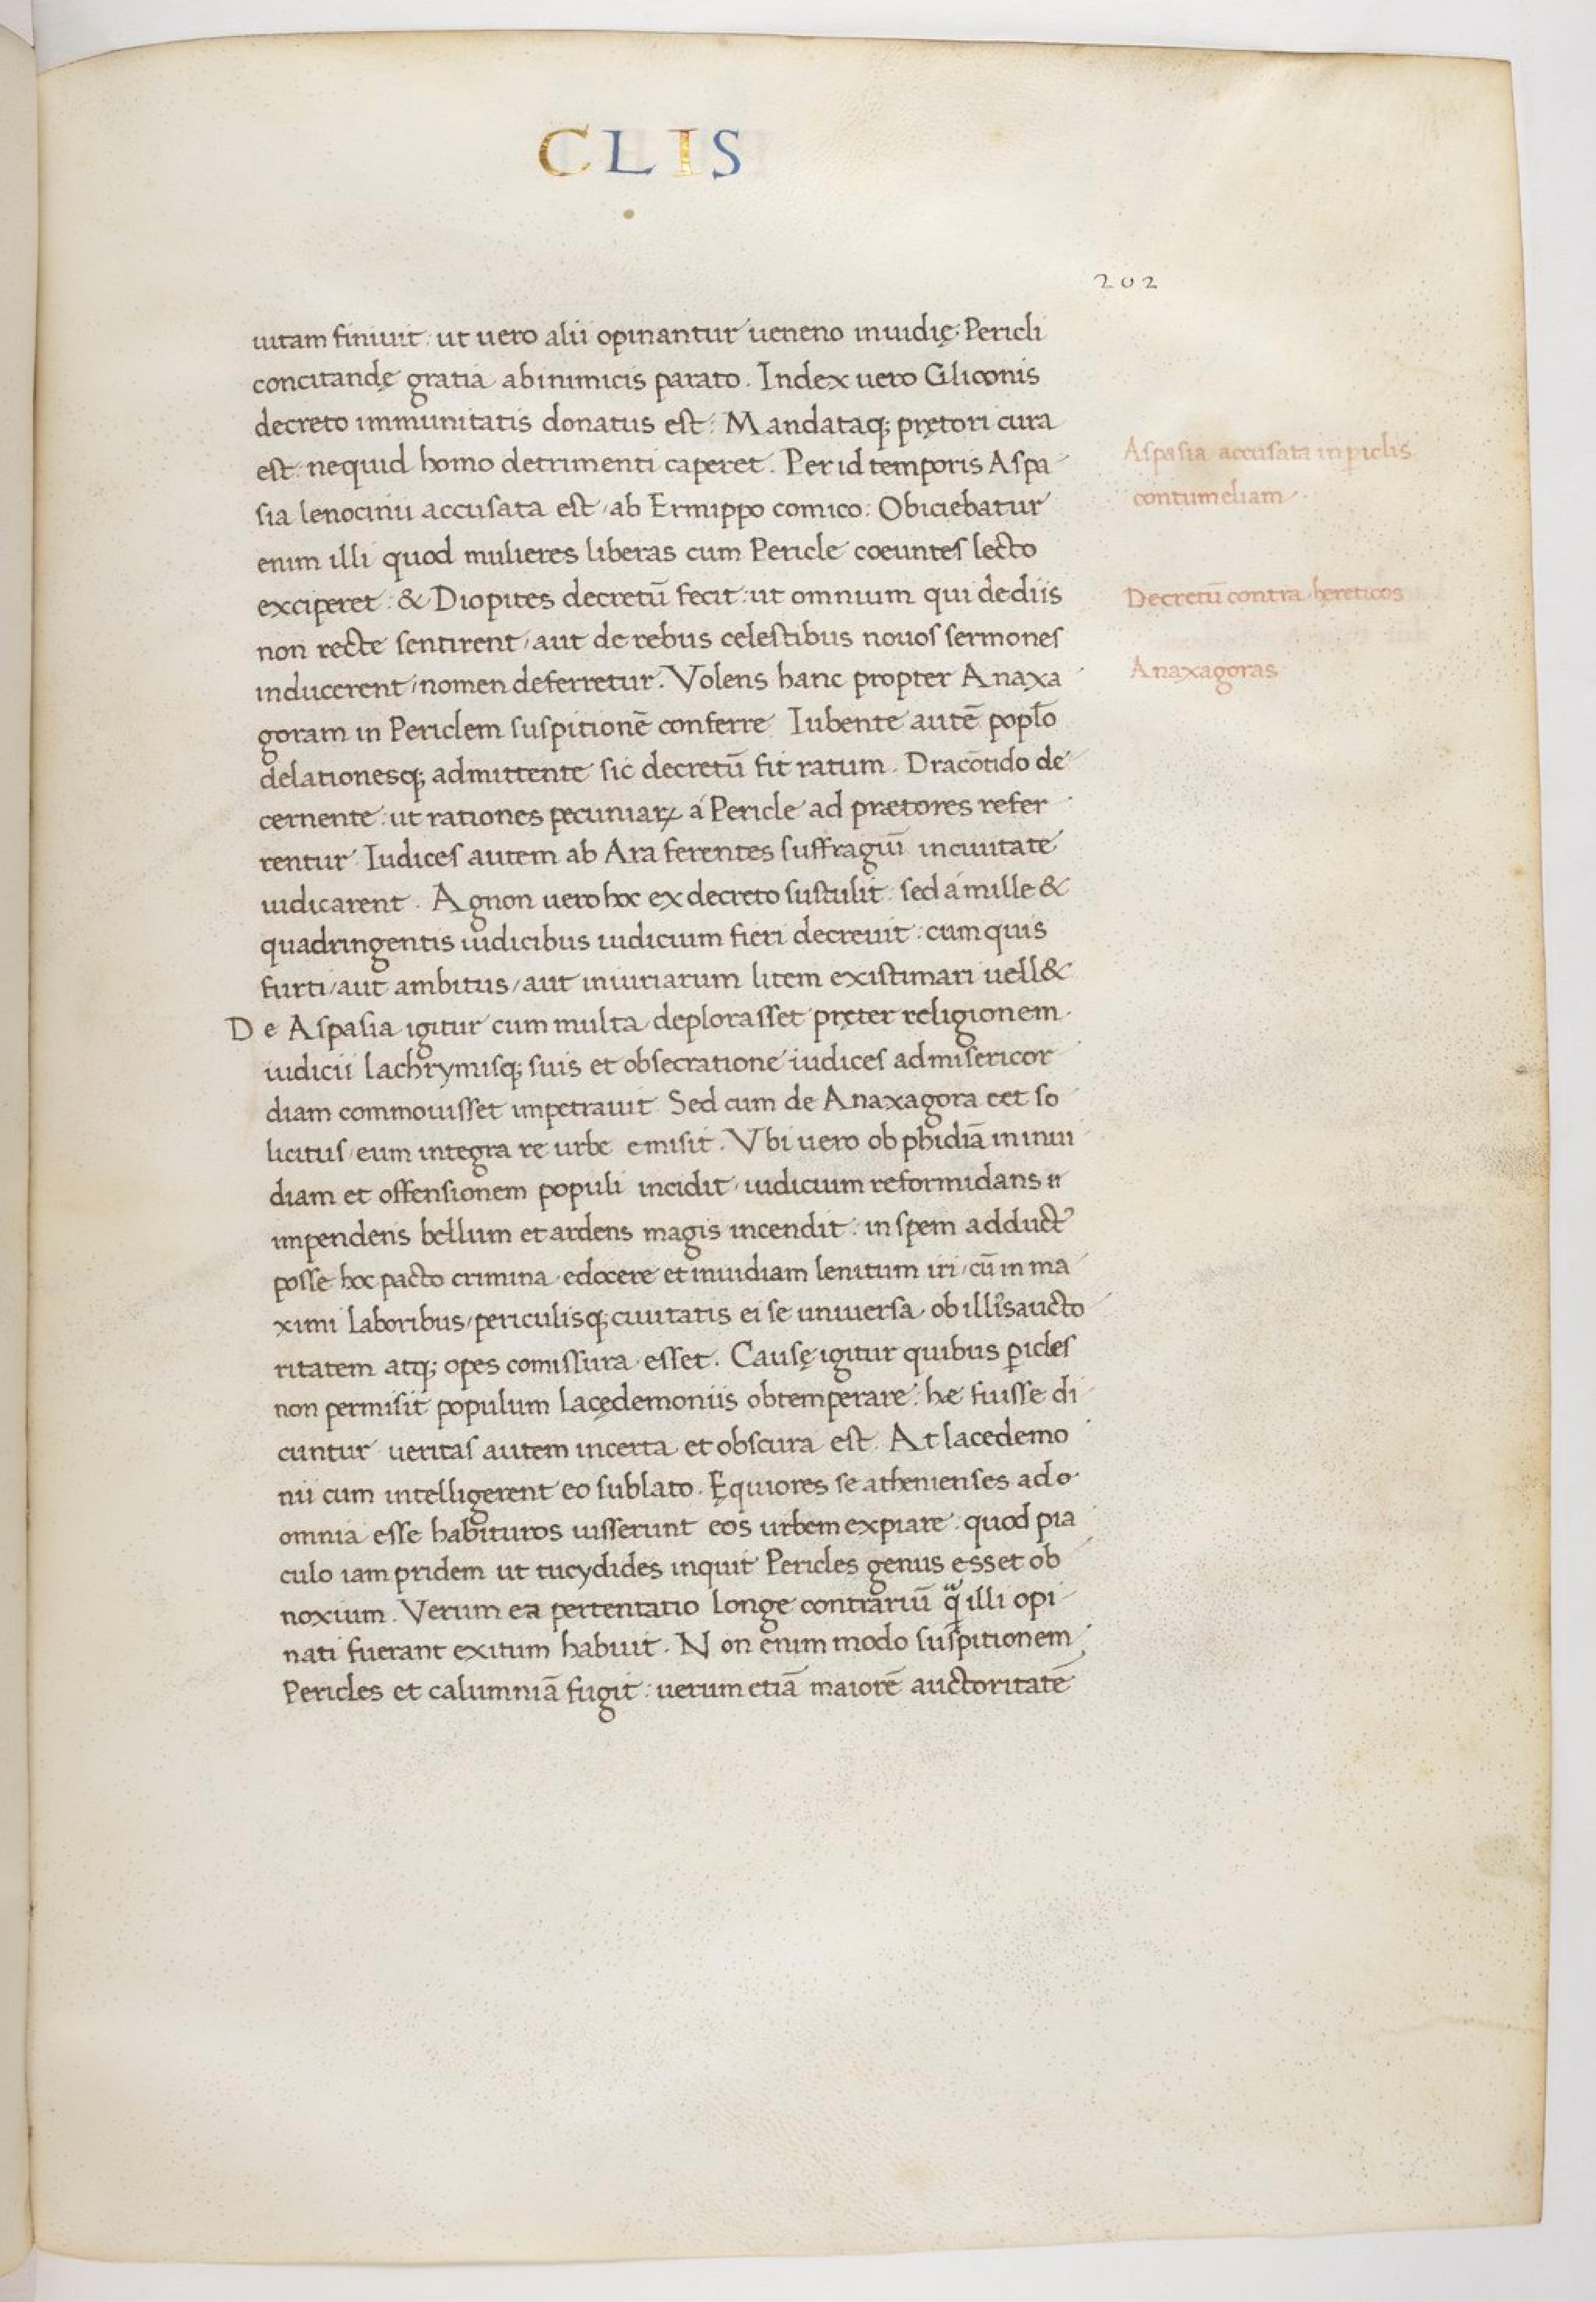 CLIS
202
uitam finiuit: ut uero alii opinantur ueneno inuidię Pericli
concitandę gratia ab inimicis parato. Index uero Gliconis
decreto immunitatis donatus est: Mandataq; prętori cura
est: nequid homo detrimenti caperet. Per id temporis Aspa
sia lenocinii accusata est, ab Ermippo comico: Obiciebatur
enim illi quod mulieres liberas cum Pericle coeuntes lecto
exciperet: & Diopites decretū fecit: ut omnium qui de diis
non recte sentirent, aut de rebus celestibus nouos sermones
inducerent, nomen deferretur. Volens hanc propter Anaxa
goram in Periclem suspitionē conferre. Iubente autē poplo
delationesq; admittente sic decretū fit ratum. Dracōtido de
cernente: ut rationes pecuniarꝝ á Pericle ad prætores refer
rentur Iudices autem ab Ara ferentes suffragiū in ciuitate
iudicarent. Agnon uero hoc ex decreto sustulit: sed á mille &
quadringentis iudicibus iudicium fieri decreuit: cum quis
furti, aut ambitus, aut iniuriarum litem existimari uell&
De Aspasia igitur cum multa deplorasset pręter religionem
iudicii lachrymisq; suis et obsecratione iudices ad misericor
diam commouisset impetrauit Sed cum de Anaxagora eet so
licitus, eum integra re urbe emisit. Vbi uero ob phidiā in inui
diam et offensionem populi incidit, iudicium reformidans
impendens bellum et ardens magis incendit: in spem adduct᾿
posse hoc pacto crimina edocere et inuidiam lenitum iri, cū in ma
ximi laboribus, periculisq; ciuitatis ei se uniuersa ob illis aucto
ritatem atq; opes comissura esset. Causę igitur quibus ꝑicles
non permisit populum lacędemoniis obtemperare: hæ fuisse di
cuntur ueritas autem incerta et obscura est. At lacedemo
nii cum intelligerent eo sublato. Ęquiores se athenienses ad o
omnia esse habituros iusserunt eos urbem expiare: quod pia
culo iam pridem ut tucydides inquit Pericles genus esset ob
noxium. Verum ea pertentatio longe contrariū illi opi
nati fuerant exitum habuit. Non enim modo suspitionem
Pericles et calumniā fugit: uerum etiā maiorē auctoritatē
Aspasia accusata in ꝑiclis
contumeliam
Decretū contra hęreticos
Anaxagoras